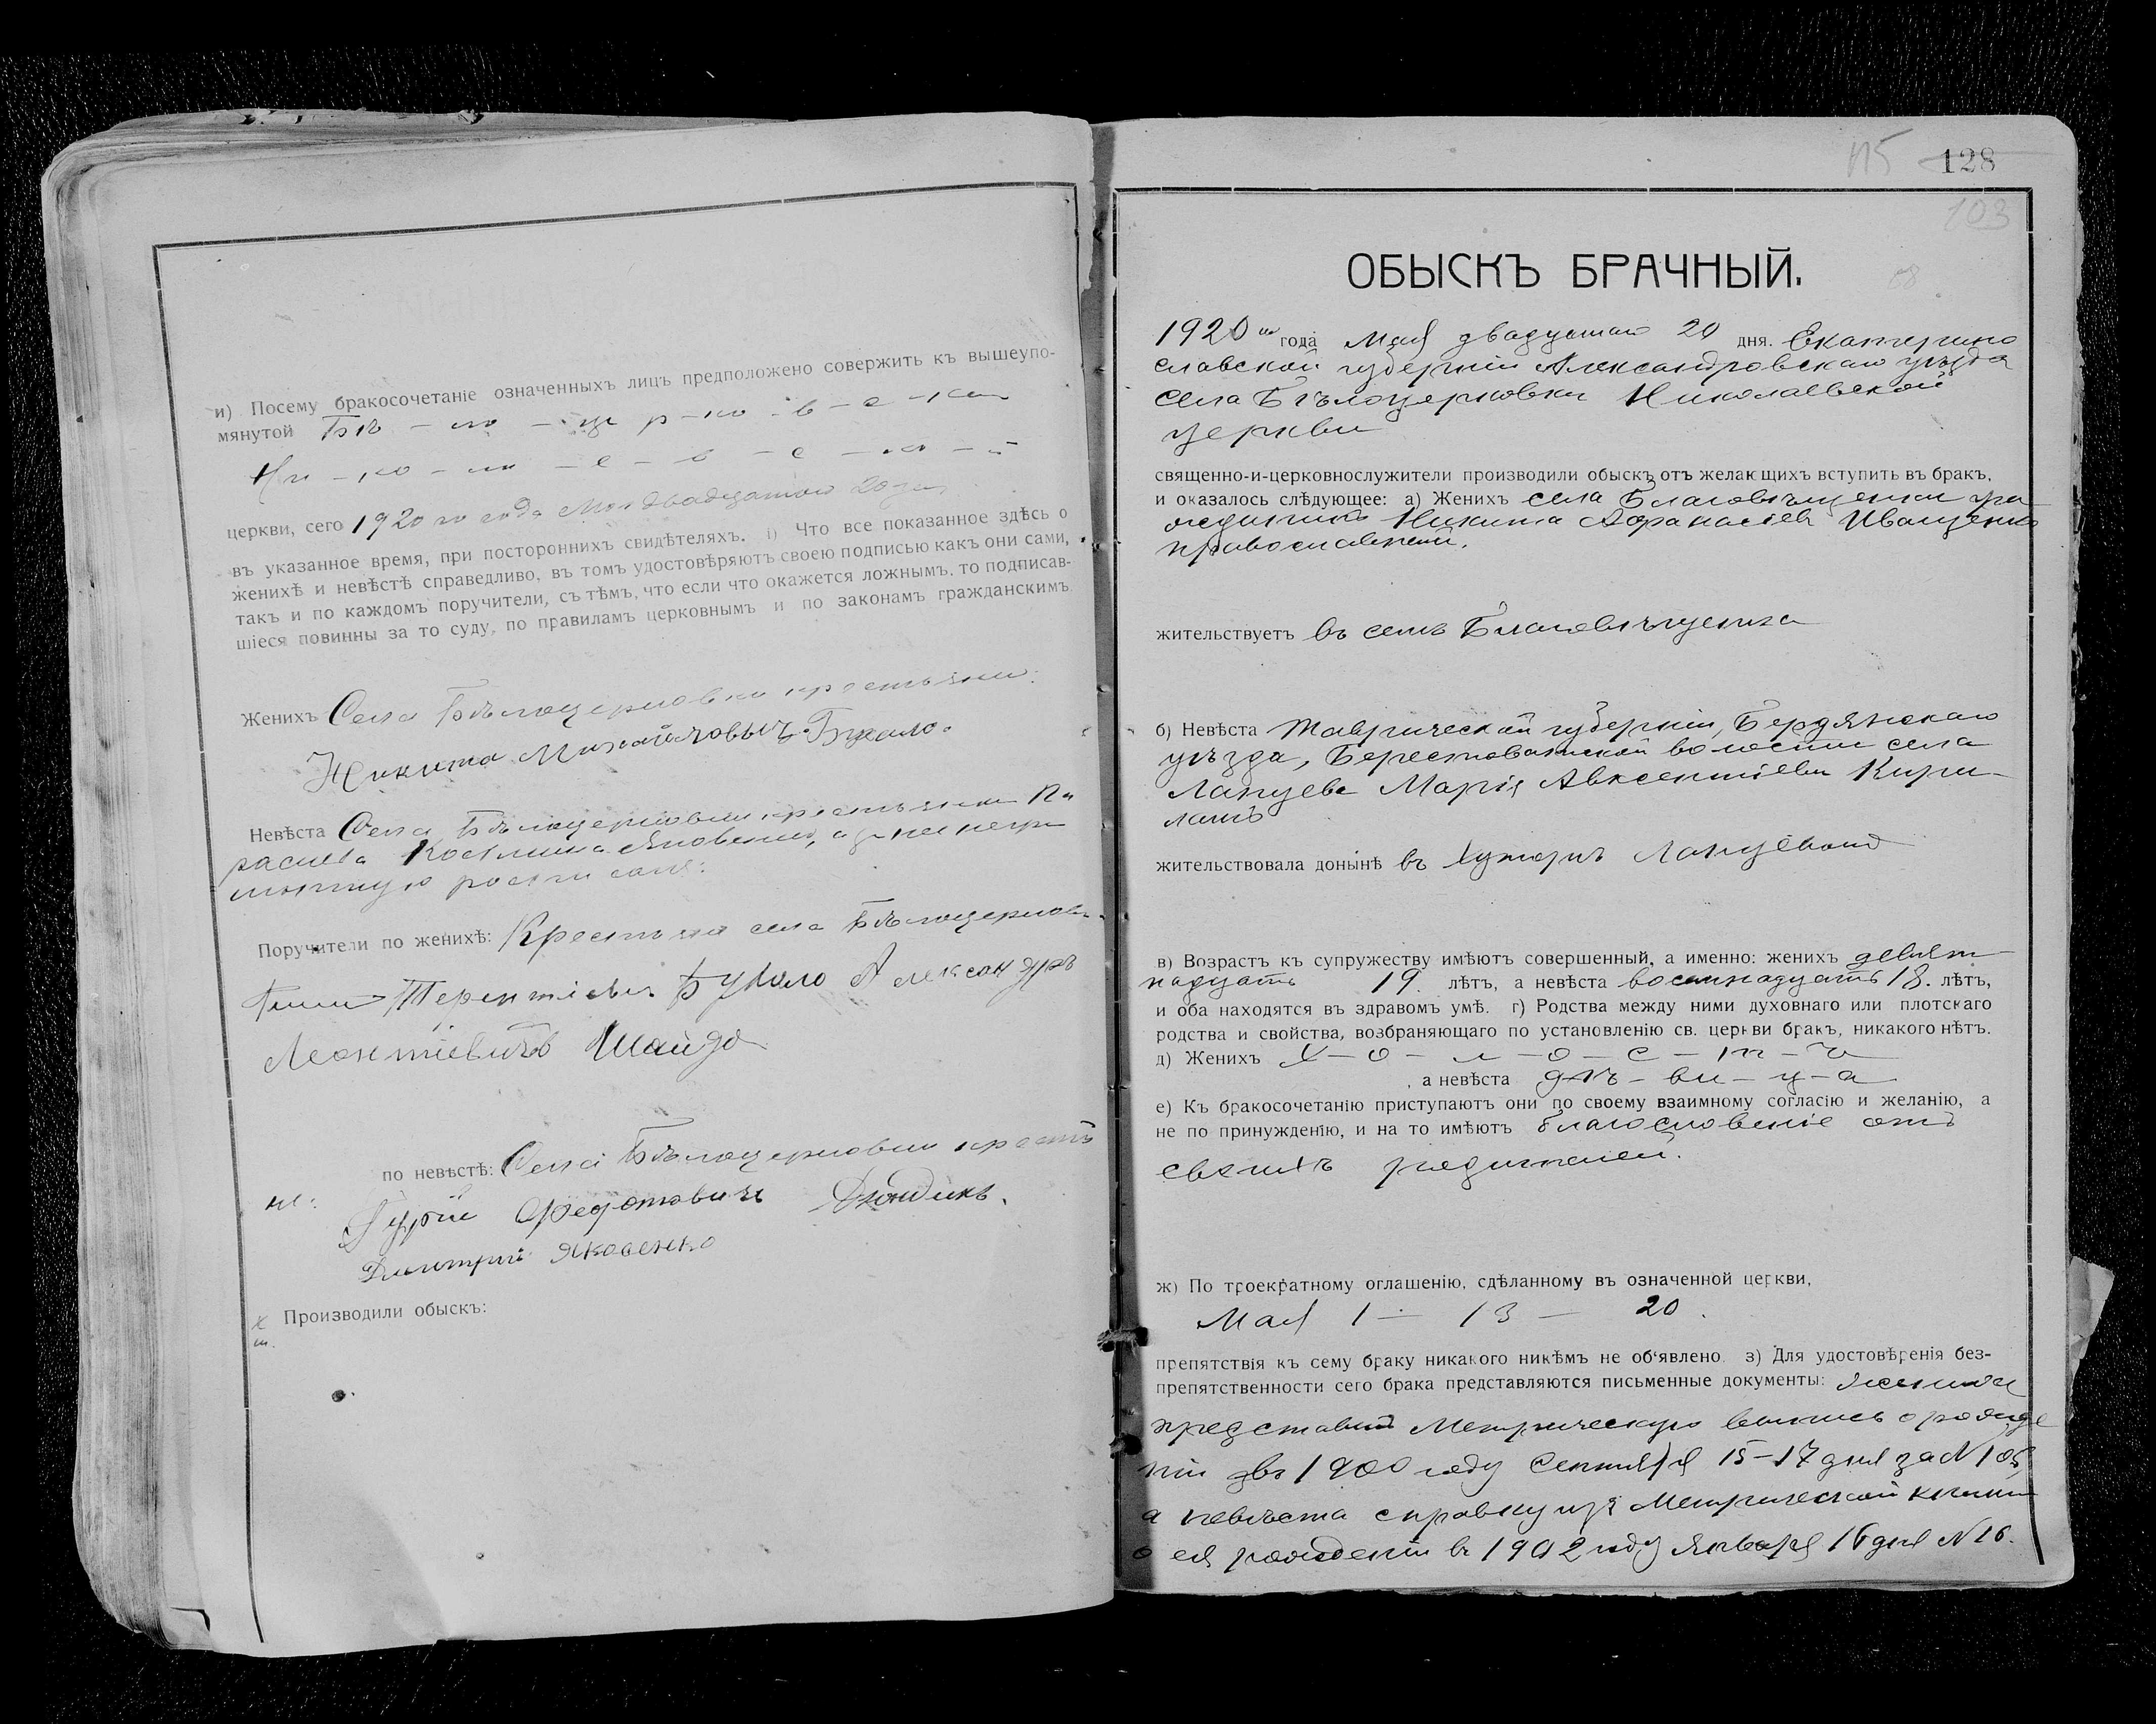 и) Посему бракосочетаніе означенныхъ лицъ предположено совержить къ вышеупо-
мянутой Бѣ - ло - це р - ко - в - с - кой
Ни - ко - ла - е - в - с - ко - й
церкви, сего 1920 го года Мая двадцатаго 20 дня
въ указанное время, при постороннихъ свидѣтеляхъ. і) Что все показанное здѣсь о
женихѣ и невѣстѣ справедливо, въ томъ удостовѣряютъ своею подписью какъ они сами,
такъ и по каждомъ поручители, съ тѣмъ, что если что окажется ложнымъ, то подписав-
шіеся повинны за то суду, по правиламъ церковнымъ и по законамъ гражданскимъ.
Женихъ Села Бѣлоцерковки крестьянин:
Никита Михайловыч
Невѣста Села Бѣлоцерковки крестьянка Па
раскева
Поручители по женихѣ: Крестьяне села Бѣлоцерков
Терентіевъ Александръ
Леонтіевичъ Шайда
по невѣстѣ: Села Бѣлоцерковки крестья
не:
Гурій Федотовичъ
Дмитрій Яковенко
Производили обыскъ:
115 128
103
ОБЫСКЪ БРАЧНЫЙ.
1920 го года Мая двадцатаго 20 дня. Екатерино
славской губерніи Александровскаго уѣзда
села Бѣлоцерковки Николаевской
церкви
священно-и-церковнослужители производили обыскъ отъ желающихъ вступить въ бракъ,
и оказалось слѣдующее: а) Женихъ села Благовѣщенки гра
жданинъ Никита Афанасіевъ Иващенко
православный.
жительствуетъ въ селѣ Благовѣщенка
б) Невѣста Таврической губерніи, Бердянскаго
уѣзда, Берестоватской волости села
Ланцево Марія Авксентіева Кири-
жительствовала донынѣ въ хуторѣ Ланцевомъ
в) Возрастъ къ супружеству имѣютъ совершенный, а именно: женихъ девят
надцать 19. лѣтъ, а невѣста восемнадцать 18. лѣтъ,
и оба находятся въ здравомъ умѣ. г) Родства между ними духовнаго или плотскаго
родства и свойства, возбраняющаго по установленію св. церкви бракъ, никакого нѣтъ.
д) Женихъ Х - о - л - о - с - т - ъ
а невѣста дѣ - ви - ц - а
е) Къ бракосочетанію приступаютъ они по своему взаимному согласію и желанію, а
не по принужденію, и на то имѣютъ благословеніе отъ
своихъ родителей.
ж) По троекратному оглашенію, сдѣланному въ означенной церкви,
Мая 1 - 13 - 20.
препятствія къ сему браку никакого никѣмъ не об'явлено. з) Для удостовѣренія без-
препятственности сего брака представляются письменные документы: женихъ
представилъ Метрическую выпись о рожде
ніи въ 1900 году Сентября 15-17 дня за №
а невѣста справку изъ Метрической книги
о ея рожденіи в 1902 году Января 16 дня № 16.